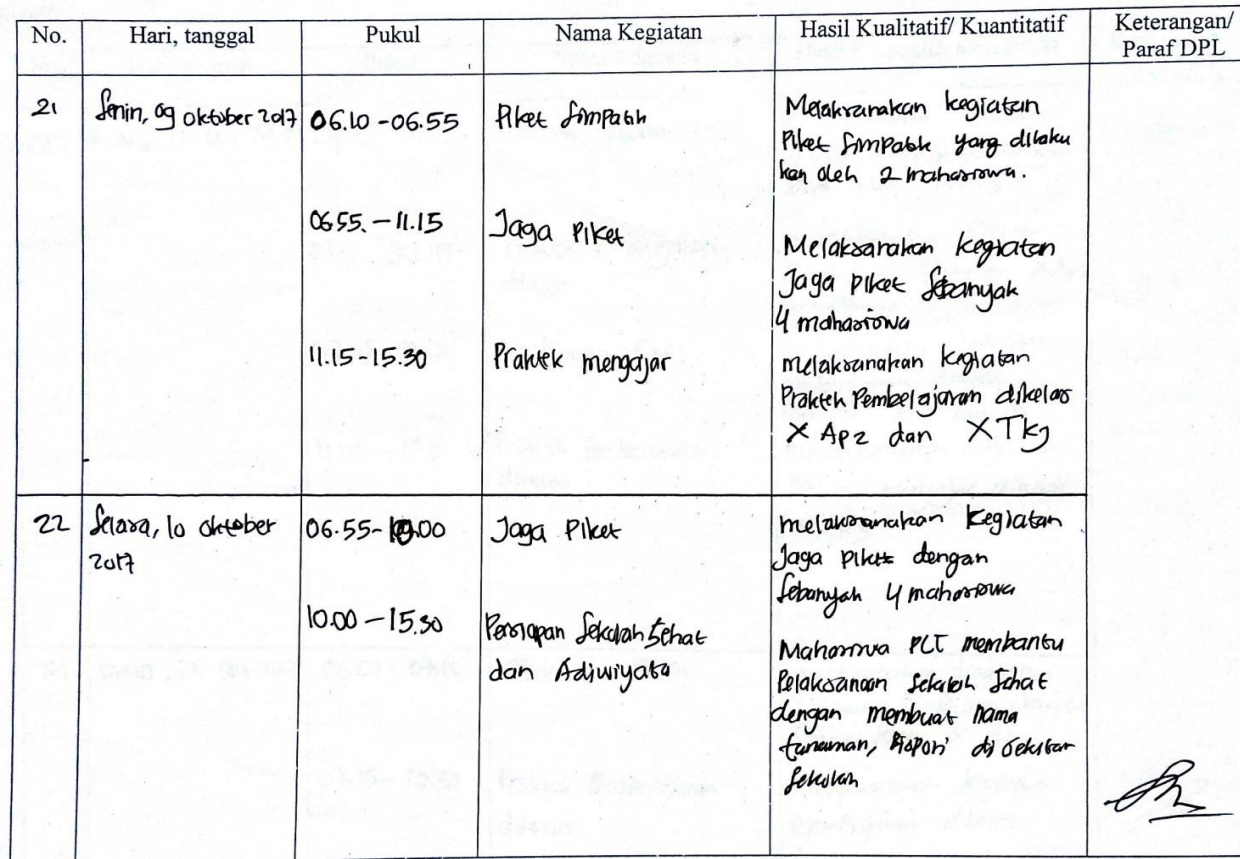 No. Hari, tanggal Pukul Nama Kegiatan Hasil Kualitatif/ Kuantitatif Keterangan/ Paraf DPL
21 Senin, 09 oktober 2017 06.10 - 06.55 Piket Simpatik Melaksanakan kegiatan
Piket Simpatik yang dilaku
kan oleh 2 mahasiswa.
06.55. - 11.15 Jaga Piket Melaksanakan kegiatan
Jaga piket Sebanyak
4 mahasiswa
11.15 - 15.30 Praktek mengajar melaksanakan kegiatan
Praktek Pembelajaran dikelas
X Ap2 dan X TKJ
22 Selasa, 10 oktober 06.55 - 10.00 Jaga Piket melaksanakan kegiatan
2017 Jaga piket dengan
Sebanyak 4 mahasiswa
10.00 - 15.30 Persiapan Sekolah Sehat
dan Adiwiyata Mahasiswa PLT membantu
Pelaksanaan Sekolah Sehat
dengan membuat nama
tanaman, Biopori di sekitar
Sekolah